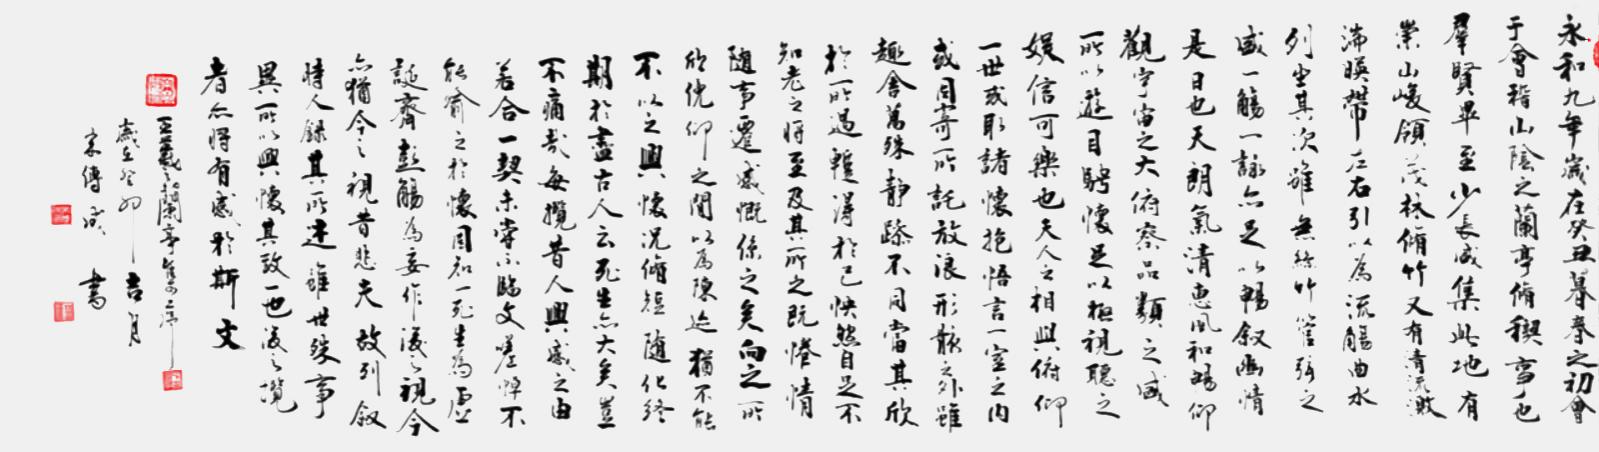 永和九年歲在癸丑暮春之初會
于會稽山陰之蘭亭脩稧事也
羣賢畢至少長咸集此地有
崇山峻領茂林脩竹又有清流激
湍暎帶左右引以為流觴曲水
列坐其次雖無絲竹管弦之
盛一觴一詠亦足以暢叙幽情
是日也天朗氣清惠風和暢仰
觀宇宙之大俯察品類之盛
所以遊目騁懷足以極視聽之
娛信可樂也夫人之相與俯仰
一世或取諸懷抱悟言一室之內
或因寄所託放浪形骸之外雖
趣舍萬殊靜躁不同當其欣
於所遇暫得於己怏然自足不
知老之將至及其所之既惓情
隨事遷感慨係之矣向之所
欣俛仰之閒以為陳迹猶不能
不以之興懷況脩短隨化終
期於盡古人云死生亦大矣豈
不痛哉每攬昔人興感之由
若合一契未嘗不臨文嗟悼不
能喻之於懷固知一死生為虛
誕齊彭殤為妄作後之視今
亦猶今之視昔悲夫故列叙
時人錄其所述雖世殊事
異所以興懷其致一也後之攬
者亦將有感於斯文
王羲之蘭亭集序
歲在癸卯吉月
宋傳成書